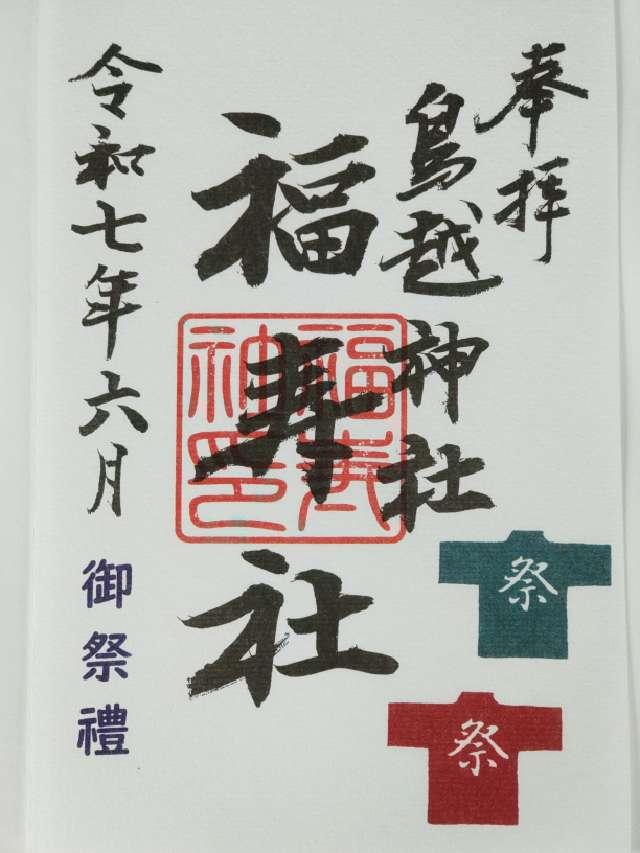 奉拝
鳥越神社
福寿社
令和七年六月
御祭禮
祭
祭